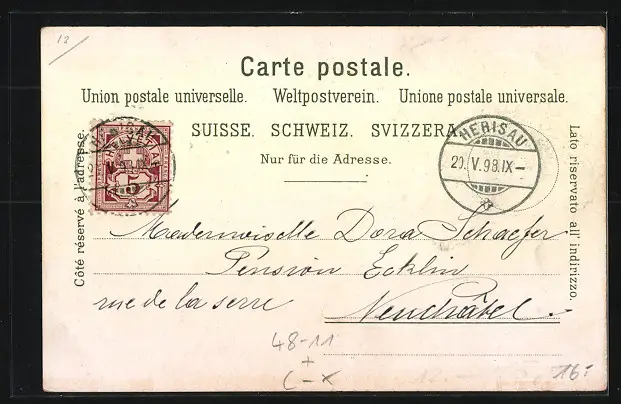 13
Carte postale.
Union postale universelle. Weltpostverein. Unione postale universale.
SUISSE. SCHWEIZ. SVIZZERA.
Nur für die Adresse.
Côté réservé à l'adresse.
Lato riservato all' indirizzo.
HERISAU
HELVETIA
5
HERISAU
29. V. 98. IX–
Mademoiselle Dora Schaefer
Pension Ecklin
rue de la serre
Neuchâtel.
48-11
+
C–X
12.–
16.-